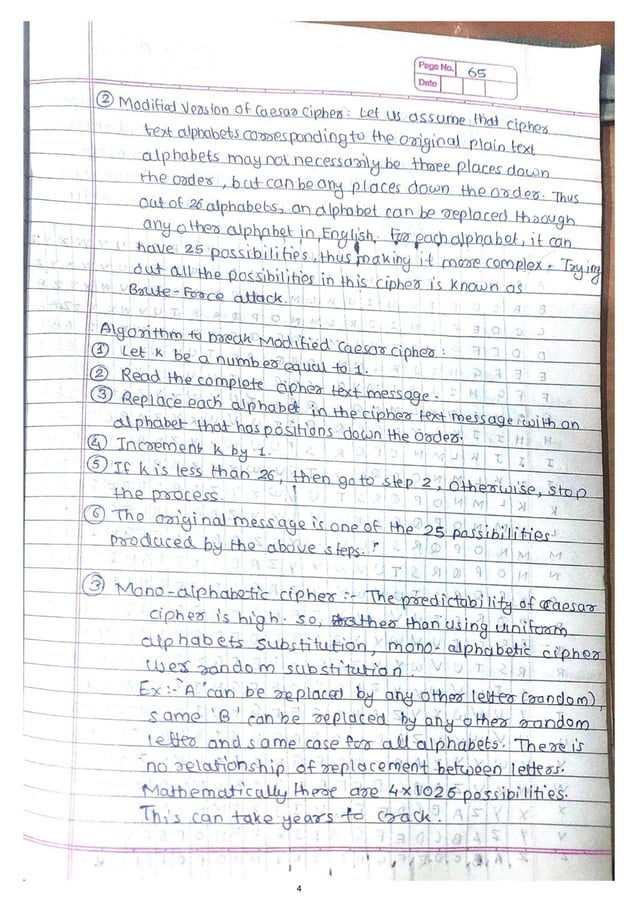 Page No. 65
Date
② Modified Version of Caesar Cipher: Let us assume that cipher
text alphabets corresponding to the original plain text
alphabets may not necessarily be three places down
the order, but can be any places down the order. Thus
out of 26 alphabets, an alphabet can be replaced through
any other alphabet in English. For each alphabet, it can
have 25 possibilities, thus making it more complex. Trying
out all the possibilities in this cipher is known as
Brute-Force attack.
Algorithm to break Modified Caesar cipher:
① Let k be a number equal to 1.
② Read the complete cipher text message.
③ Replace each alphabet in the cipher text message with an
alphabet that has positions down the order.
④ Increment k by 1.
⑤ If k is less than 26, then go to step 2, otherwise, stop
the process.
⑥ The original message is one of the 25 possibilities
produced by the above steps.
③ Mono-alphabetic cipher :- The predictability of Caesar
cipher is high. so, rather than using uniform
alphabets substitution, mono-alphabetic cipher
uses random substitution.
Ex:- 'A' can be replaced by any other letter (random),
same 'B' can be replaced by any other random
letter and same case for all alphabets. There is
no relationship of replacement between letters.
Mathematically there are 4x1026 possibilities.
This can take years to crack.
4